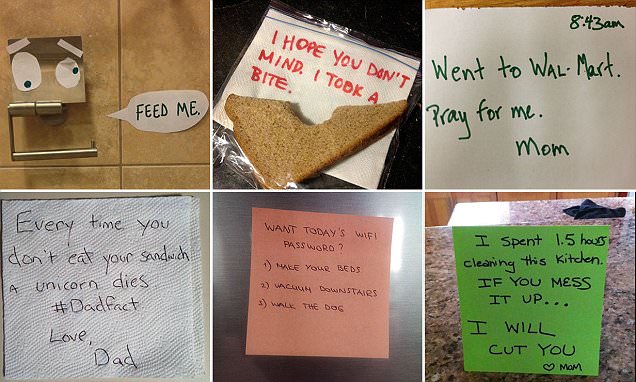 FEED ME.
I HOPE YOU DON'T
MIND. I TOOK A
BITE.
8:43am
Went to WAL-MART.
Pray for me.
Mom
Every time you
don't eat your sandwich
a unicorn dies
#DadFact
Love,
Dad
WANT TODAY'S WIFI
PASSWORD?
1) MAKE YOUR BEDS
2) VACUUM DOWNSTAIRS
3) WALK THE DOG
I Spent 1.5 hours
cleaning this Kitchen.
IF YOU MESS
IT UP...
I WILL
CUT YOU
♡ MOM